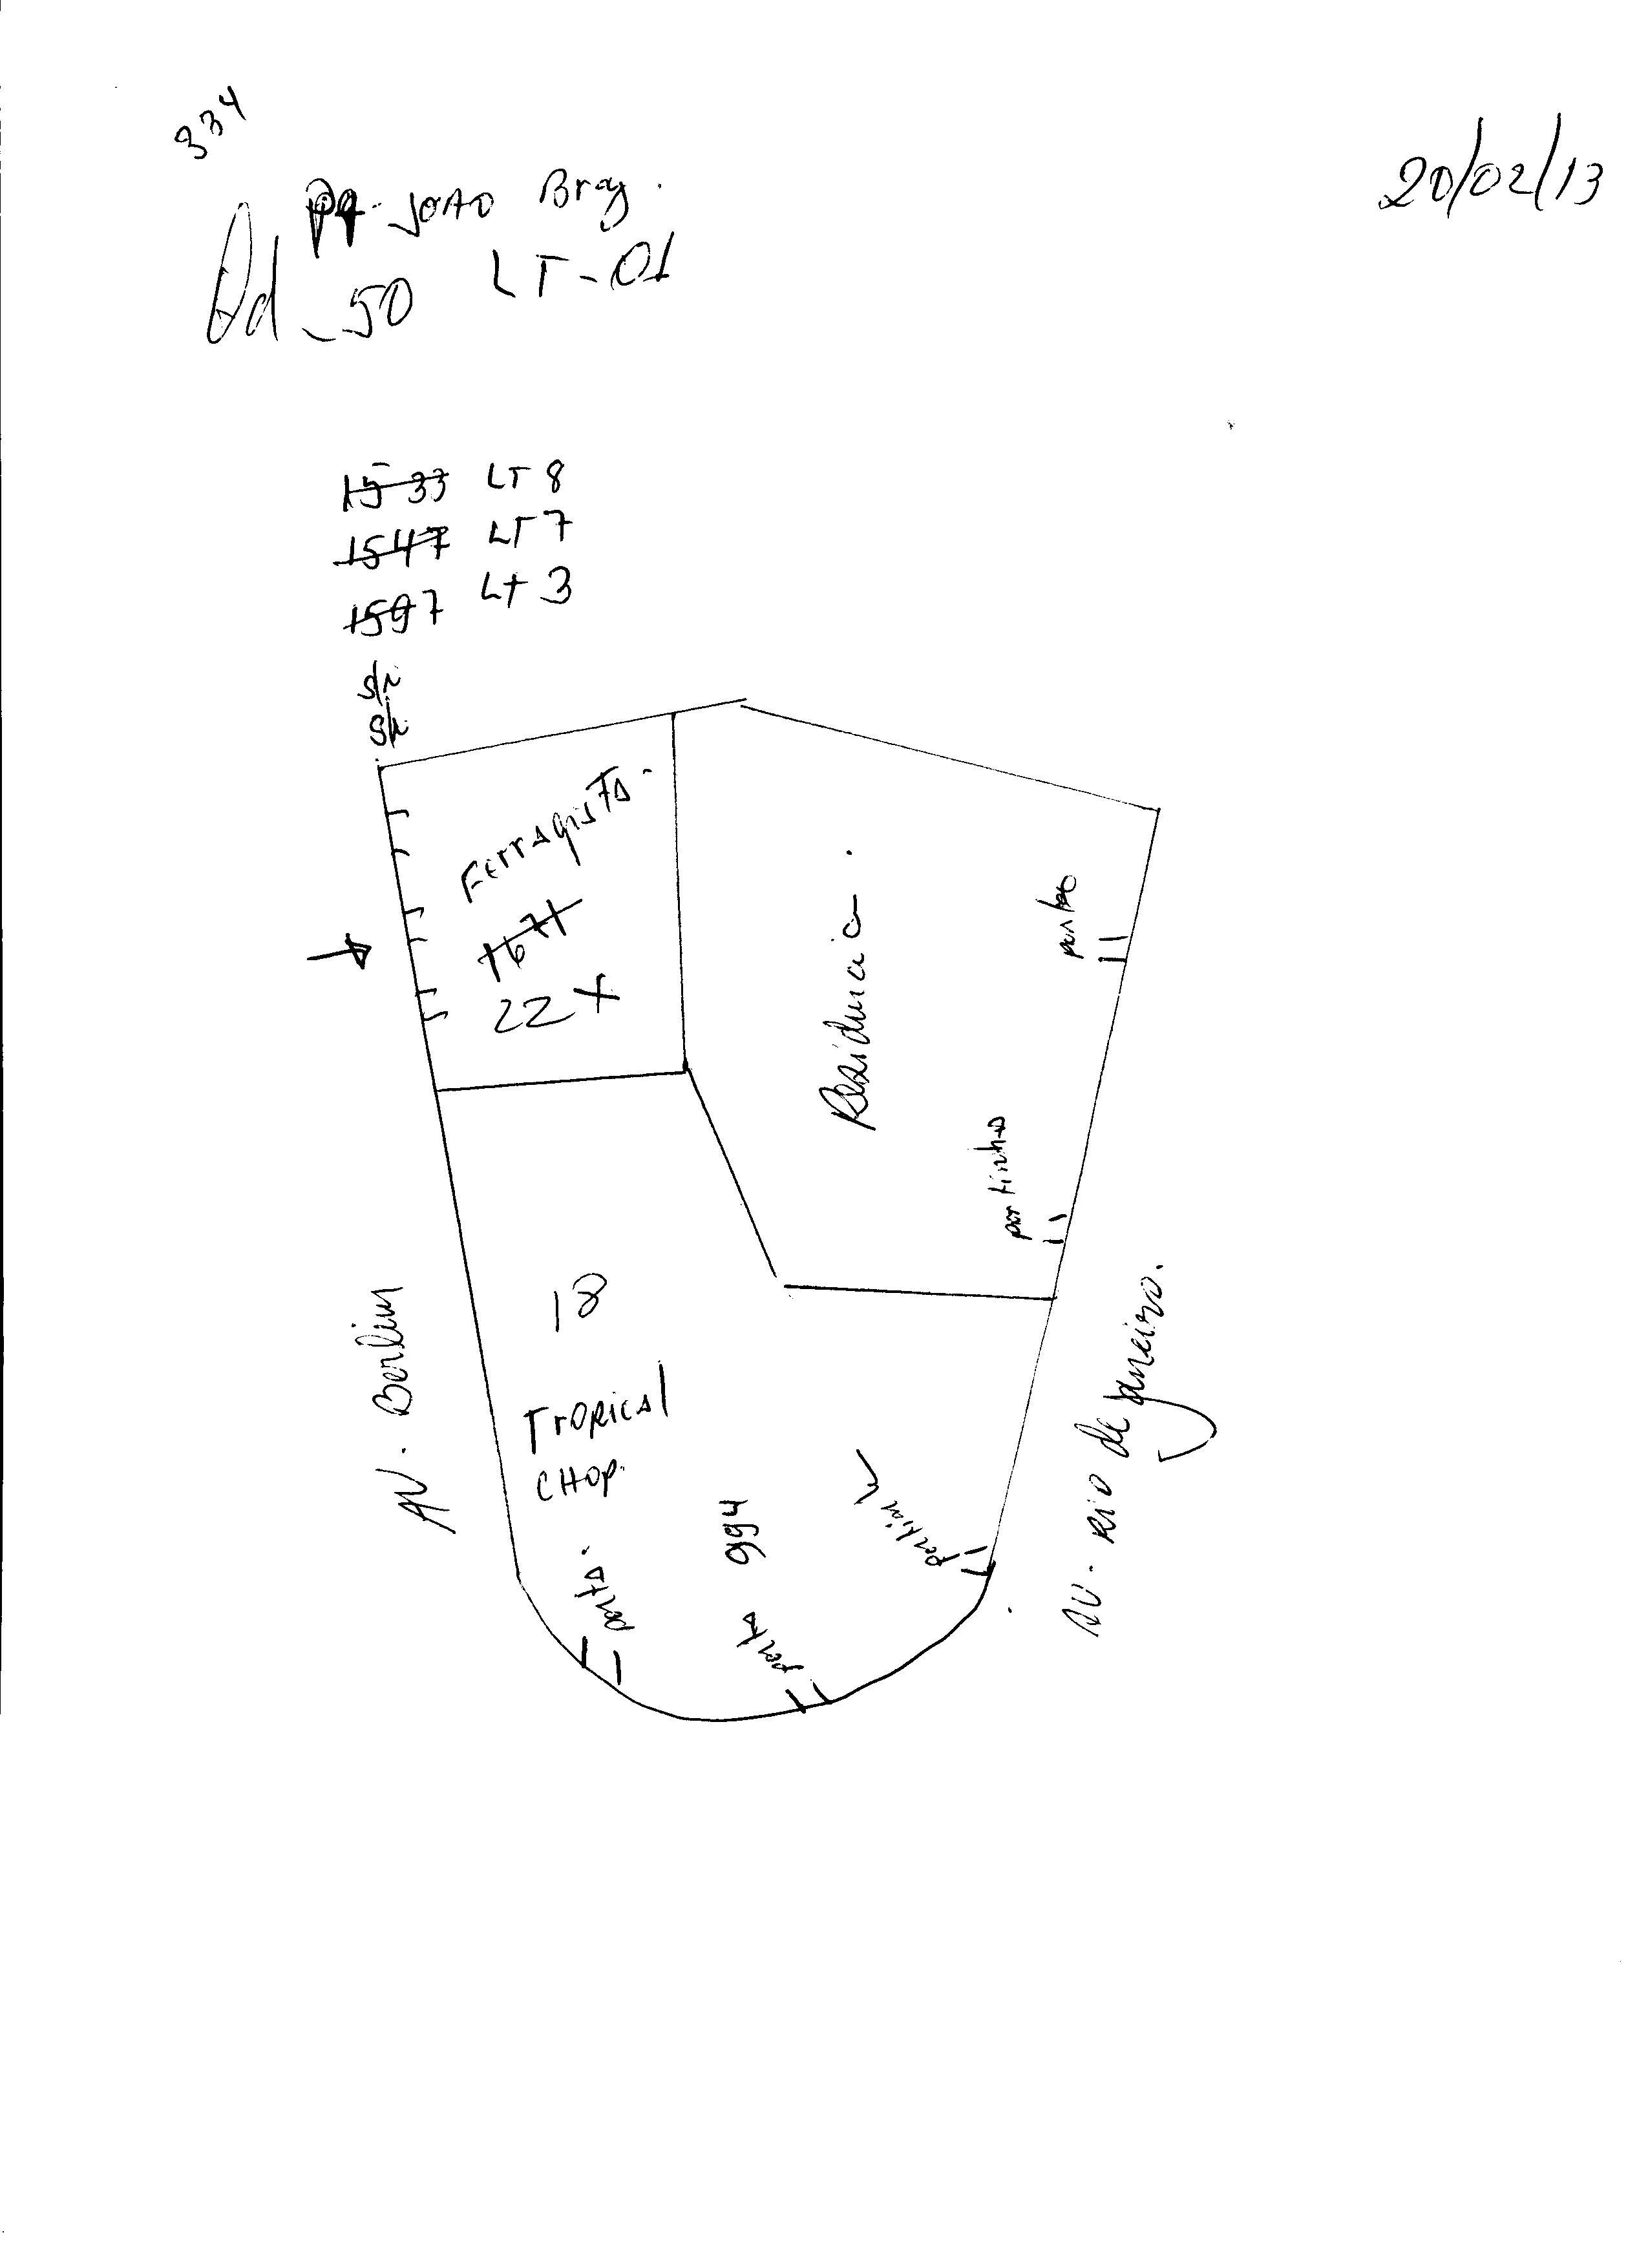 334
20/02/13
Pq. JOAO Braz.
Qd_50 LT-01
1533 LT 8
1547 LT 7
1597 LT 3
s/n
s/n
Ferragista.
1671
22 X
Residencia.
portao
portinha
18
Tropical
CHOP.
994
porta.
porta
portinha
AV. Berlim
AV. Rio de Janeiro.